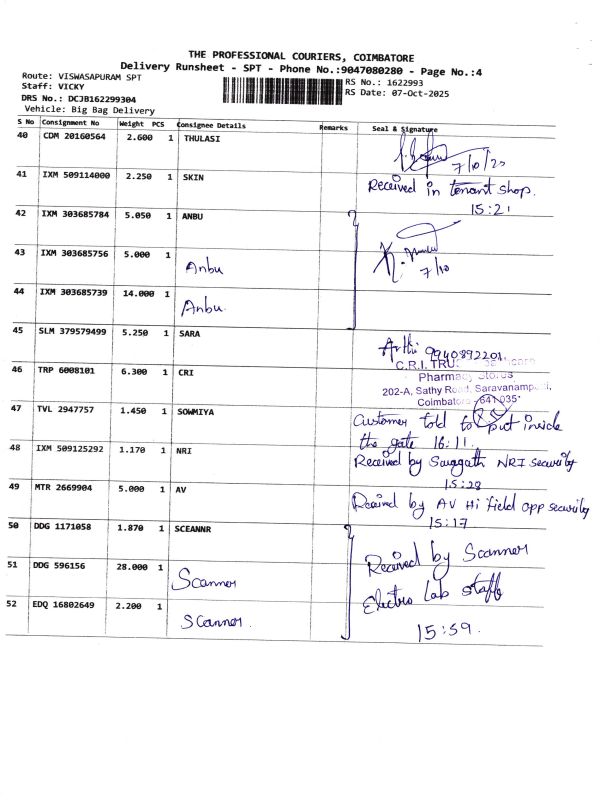 THE PROFESSIONAL COURIERS, COIMBATORE
Delivery Runsheet - SPT - Phone No.:9047080280 - Page No.:4
Route: VISWASAPURAM SPT
Staff: VICKY
DRS No.: DCJB162299304
Vehicle: Big Bag Delivery
RS No.: 1622993
RS Date: 07-Oct-2025
S No Consignment No Weight PCS Consignee Details Remarks Seal & Signature
40 CDM 20160564 2.600 1 THULASI
7/10/25
41 IXM 509114000 2.250 1 SKIN Received in tenant shop.
15:21
42 IXM 303685784 5.050 1 ANBU
43 IXM 303685756 5.000 1 Anbu
7/10
44 IXM 303685739 14.000 1 Anbu.
45 SLM 379579499 5.250 1 SARA
9940392201
46 TRP 6008101 6.300 1 CRI
C.R.I. TRU
Pharmacy Stores
202-A, Sathy Road, Saravanamp
Coimbatore 641 035
47 TVL 2947757 1.450 1 SOWMIYA Customer told to put inside
the gate 16:11.
48 IXM 509125292 1.170 1 NRI Received by NRI security
15:28
49 MTR 2669904 5.000 1 AV Received by AV Hi field opp security
15:17
50 DDG 1171058 1.870 1 SCEANNR
51 DDG 596156 28.000 1 Scanner
Received by Scanner
Electro Lab staff
52 EDQ 16802649 2.200 1 Scanner.
15:59.